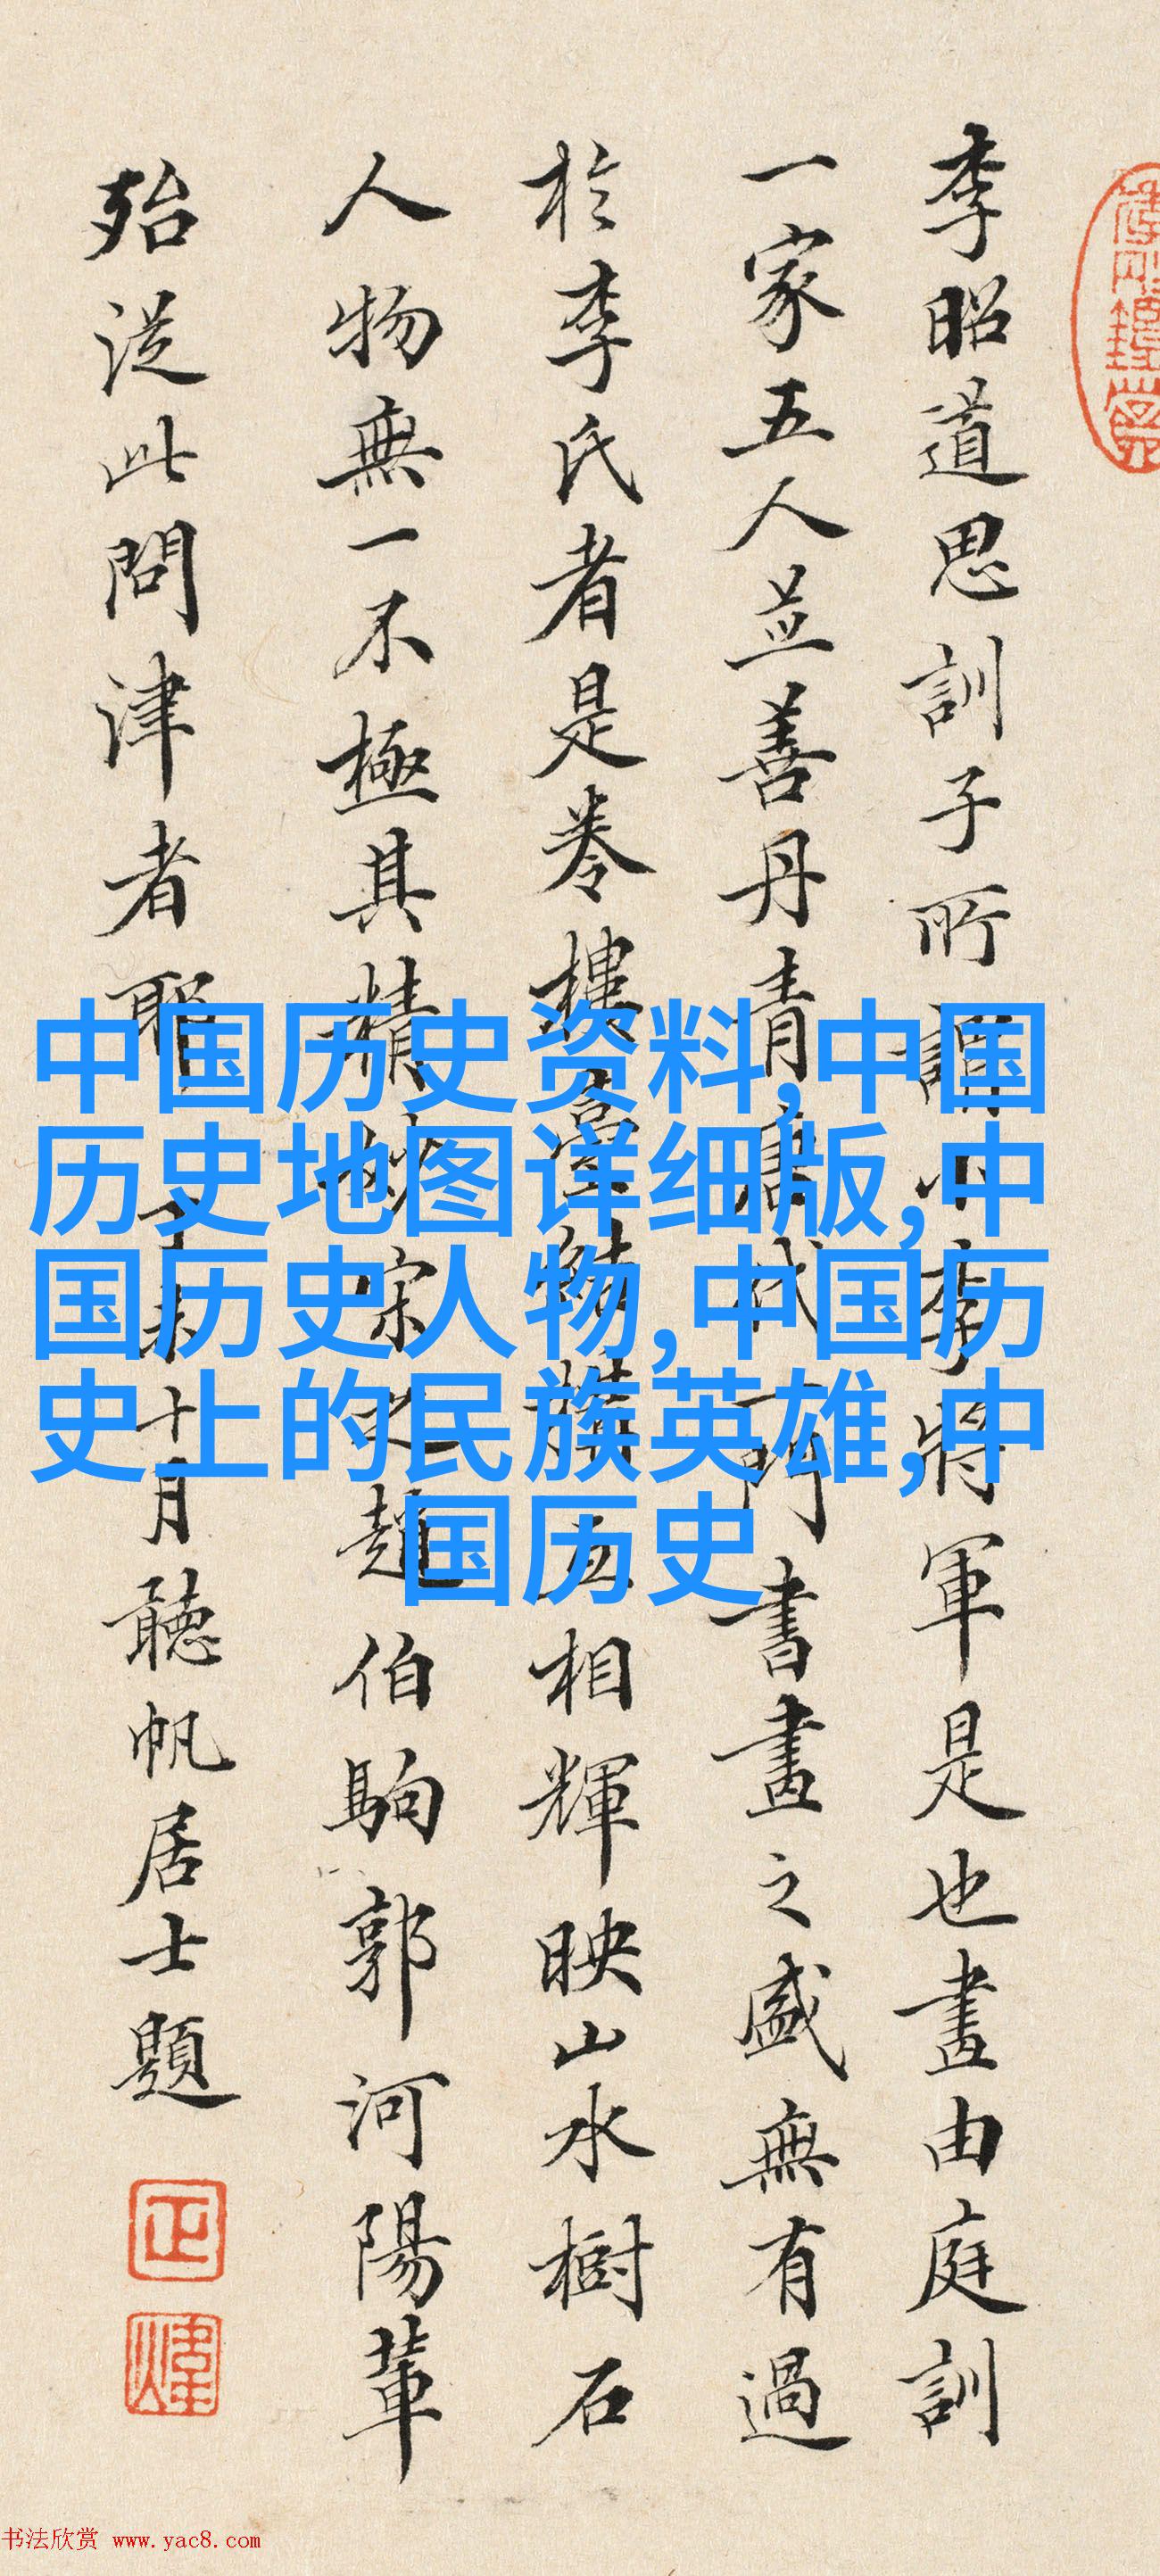 李昭道思訓子所謂小李將軍是也畫由庭訓
一家五人並善丹青唐代一門書畫之盛無有過
於李氏者是卷樓臺結構互相輝映山水樹石
人物無一不極其精妙宋之趙伯駒郭河陽輩
殆從此問津者耶 十月聽帆居士題
中国历史资料,中国
历史地图详细版,中
国历史人物,中国历
史上的民族英雄,中
国历史
书法欣赏 www.yac8.com